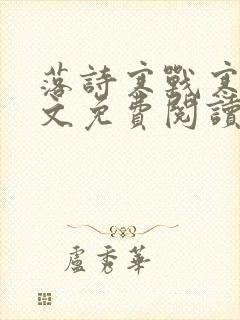 落詩寒戰寒
文免費閱讀
盧秀華